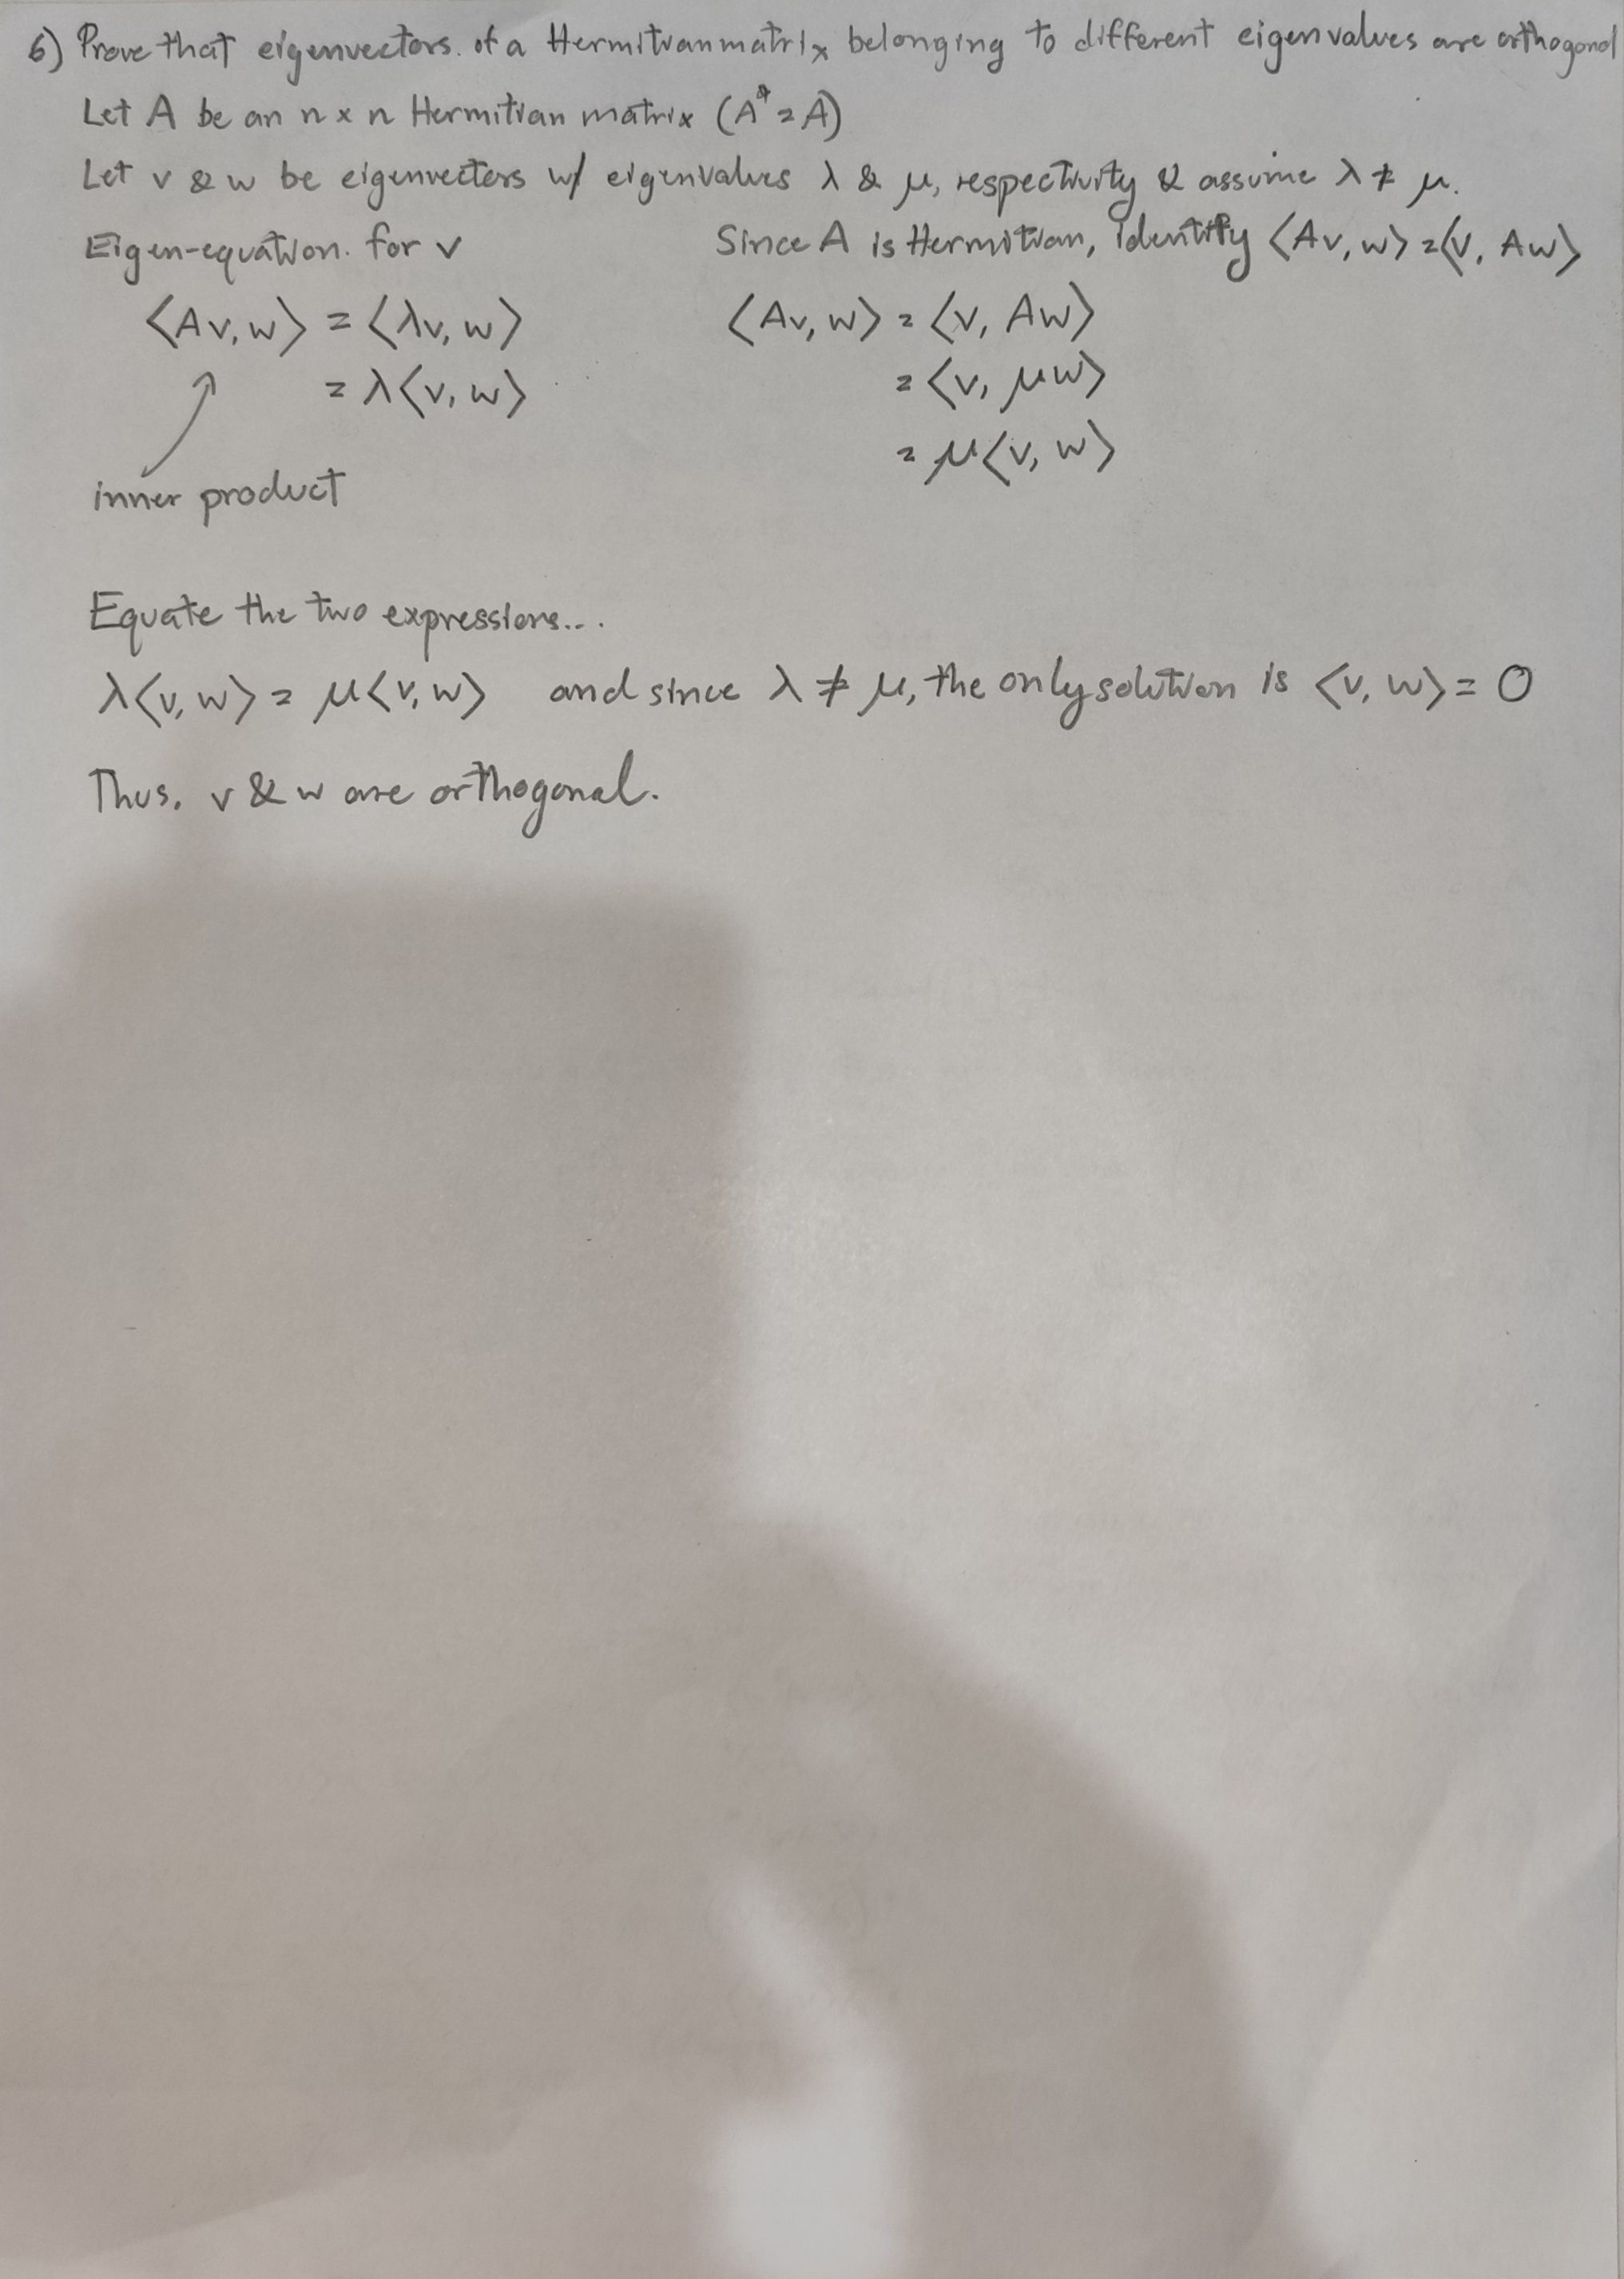 6) Prove that eigenvectors of a Hermitian matrix belonging to different eigenvalues are orthogonal
Let A be an n x n Hermitian matrix (A* = A)
Let v & w be eigenvectors w/ eigenvalues λ & μ, respectivity & assume λ ≠ μ.
Eigen-equation for v
Since A is Hermitian, identity ⟨Av, w⟩ = ⟨v, Aw⟩
⟨Av, w⟩ = ⟨λv, w⟩
= λ⟨v, w⟩
inner product
⟨Av, w⟩ = ⟨v, Aw⟩
= ⟨v, μw⟩
= μ⟨v, w⟩
Equate the two expressions...
λ⟨v, w⟩ = μ⟨v, w⟩ and since λ ≠ μ, the only solution is ⟨v, w⟩ = 0
Thus, v & w are orthogonal.